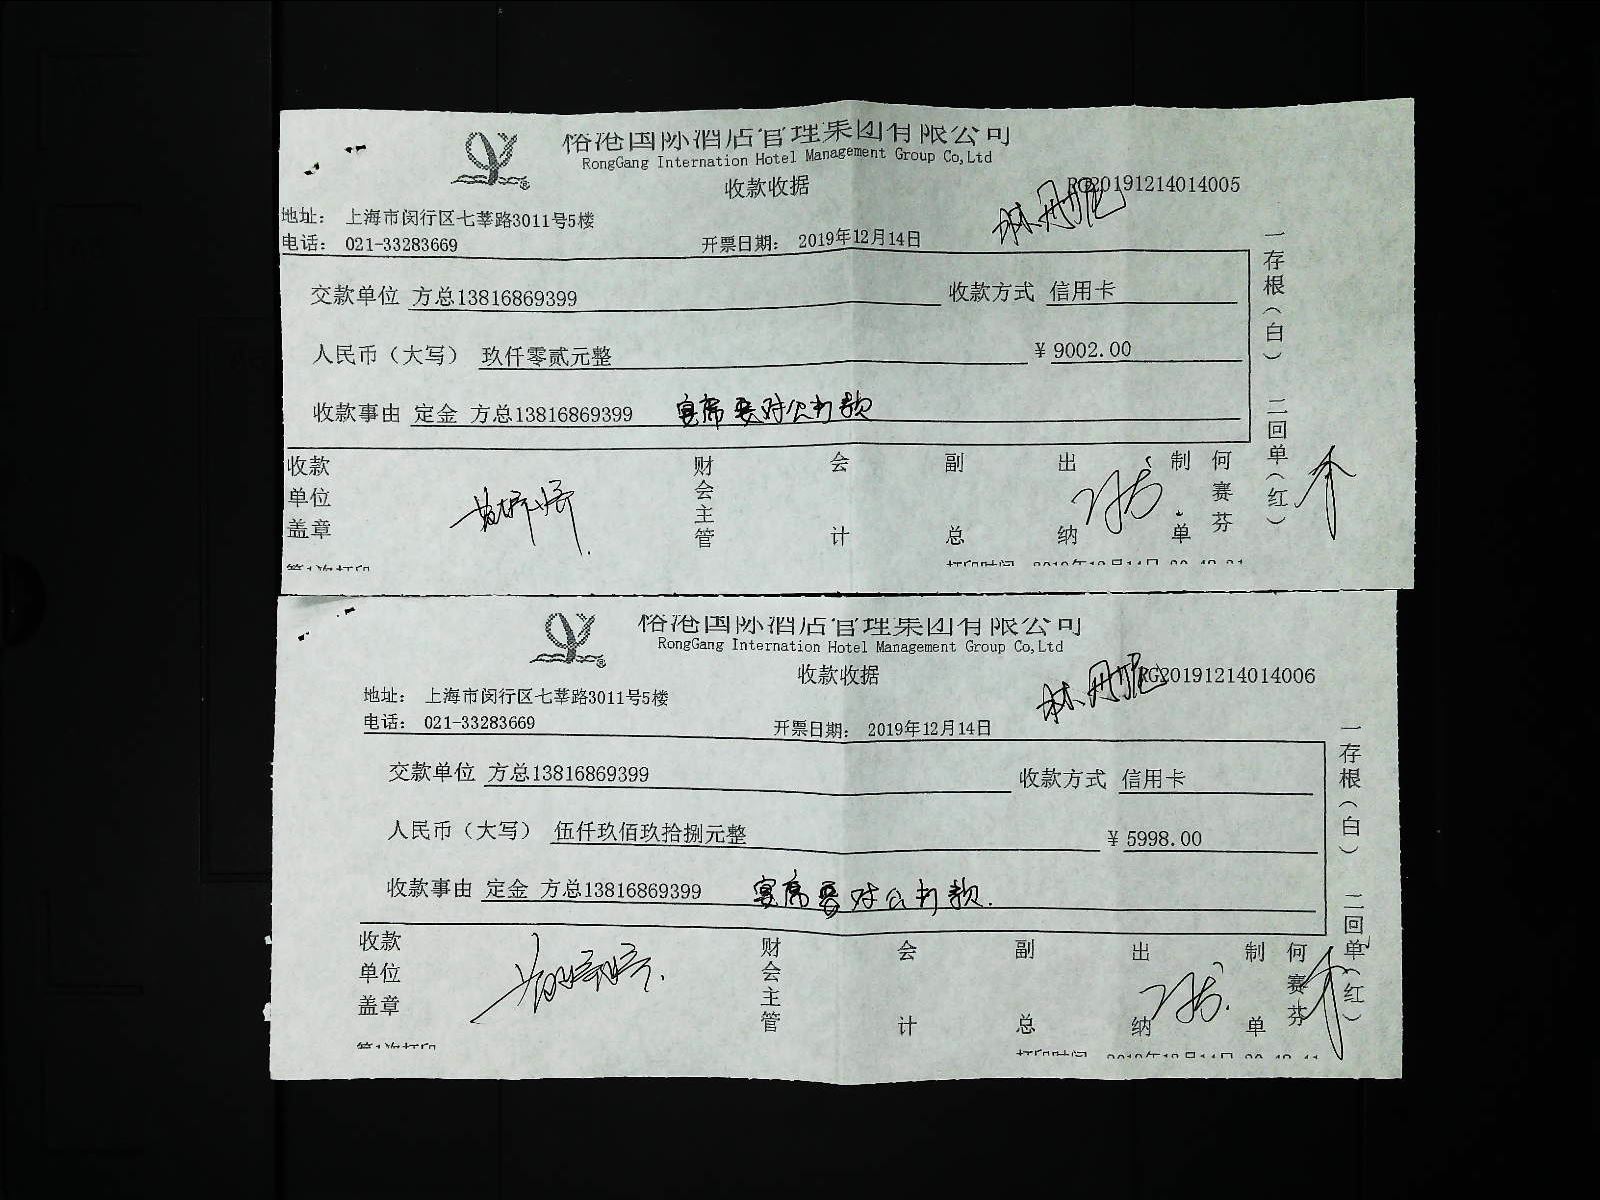 裕港国际酒店管理集团有限公司
RongGang Internation Hotel Management Group Co,Ltd
收款收据
RG20191214014005
地址： 上海市闵行区七莘路3011号5楼
电话： 021-33283669
开票日期： 2019年12月14日
交款单位 方总13816869399 收款方式 信用卡
人民币（大写） 玖仟零贰元整 ¥ 9002.00
收款事由 定金 方总13816869399 宴席要对公打款
收款单位盖章 财会主管 会计 副总 出纳 制单 何赛芬
一存根（白） 二回单（红）
第1次打印 打印时间 2019年12月14日
裕港国际酒店管理集团有限公司
RongGang Internation Hotel Management Group Co,Ltd
收款收据
RG20191214014006
地址： 上海市闵行区七莘路3011号5楼
电话： 021-33283669
开票日期： 2019年12月14日
交款单位 方总13816869399 收款方式 信用卡
人民币（大写） 伍仟玖佰玖拾捌元整 ¥ 5998.00
收款事由 定金 方总13816869399 宴席要对公打款.
收款单位盖章 财会主管 会计 副总 出纳 制单 何赛芬
一存根（白） 二回单（红）
第1次打印 打印时间 2019年12月14日